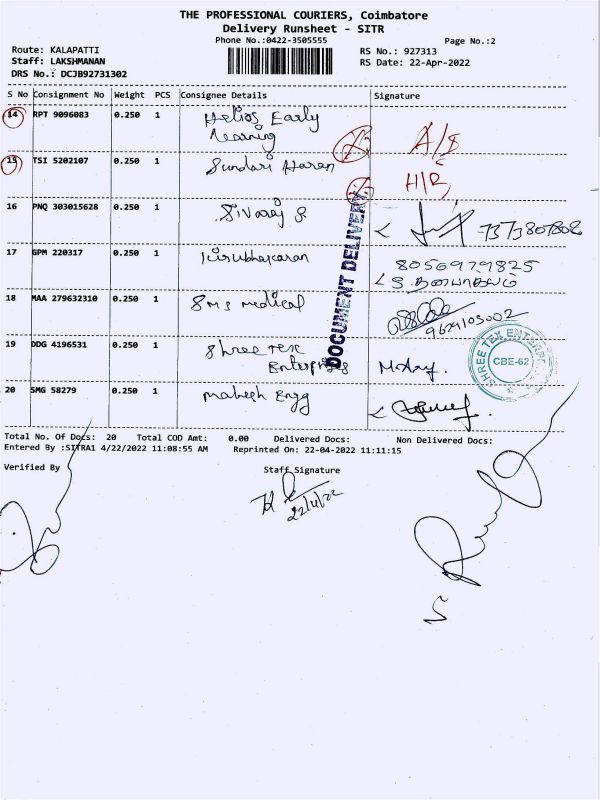 THE PROFESSIONAL COURIERS, Coimbatore
Delivery Runsheet - SITR
Phone No.:0422-3505555
Page No.:2
Route: KALAPATTI
RS No.: 927313
Staff: LAKSHMANAN
RS Date: 22-Apr-2022
DRS No.: DCJB92731302
S No Consignment No Weight PCS Consignee Details Signature
14 RPT 9096083 0.250 1 Helios Early
Learning
15 TSI 5202107 0.250 1 Sundari Haran
16 PNQ 303015628 0.250 1 Sivaraj S 7373807808
17 GPM 220317 0.250 1 Kirubhakaran 8056979825
18 MAA 279632310 0.250 1 SMS medical
19 DDG 4196531 0.250 1 Shree Tex
Enterprises
20 SMG 58279 0.250 1 mahesh Engg
DOCUMENT DELIVERY
SHREE TEX ENTERPRISES
CBE-62
Total No. Of Docs: 20 Total COD Amt: 0.00 Delivered Docs: Non Delivered Docs:
Entered By :SITRA1 4/22/2022 11:08:55 AM Reprinted On: 22-04-2022 11:11:15
Verified By
Staff Signature
22/4/22